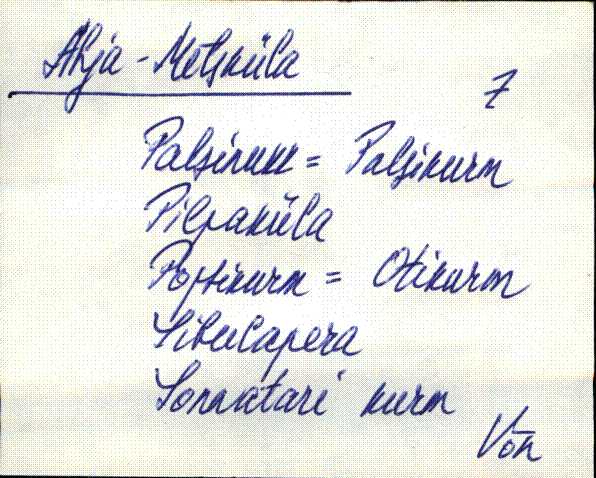 Ahja - Metsküla
7
Palsinukk = Palsikurm
Pilpaküla
Postikurm = Otikurm
Sibulapera
Sonnatari kurm
Võn